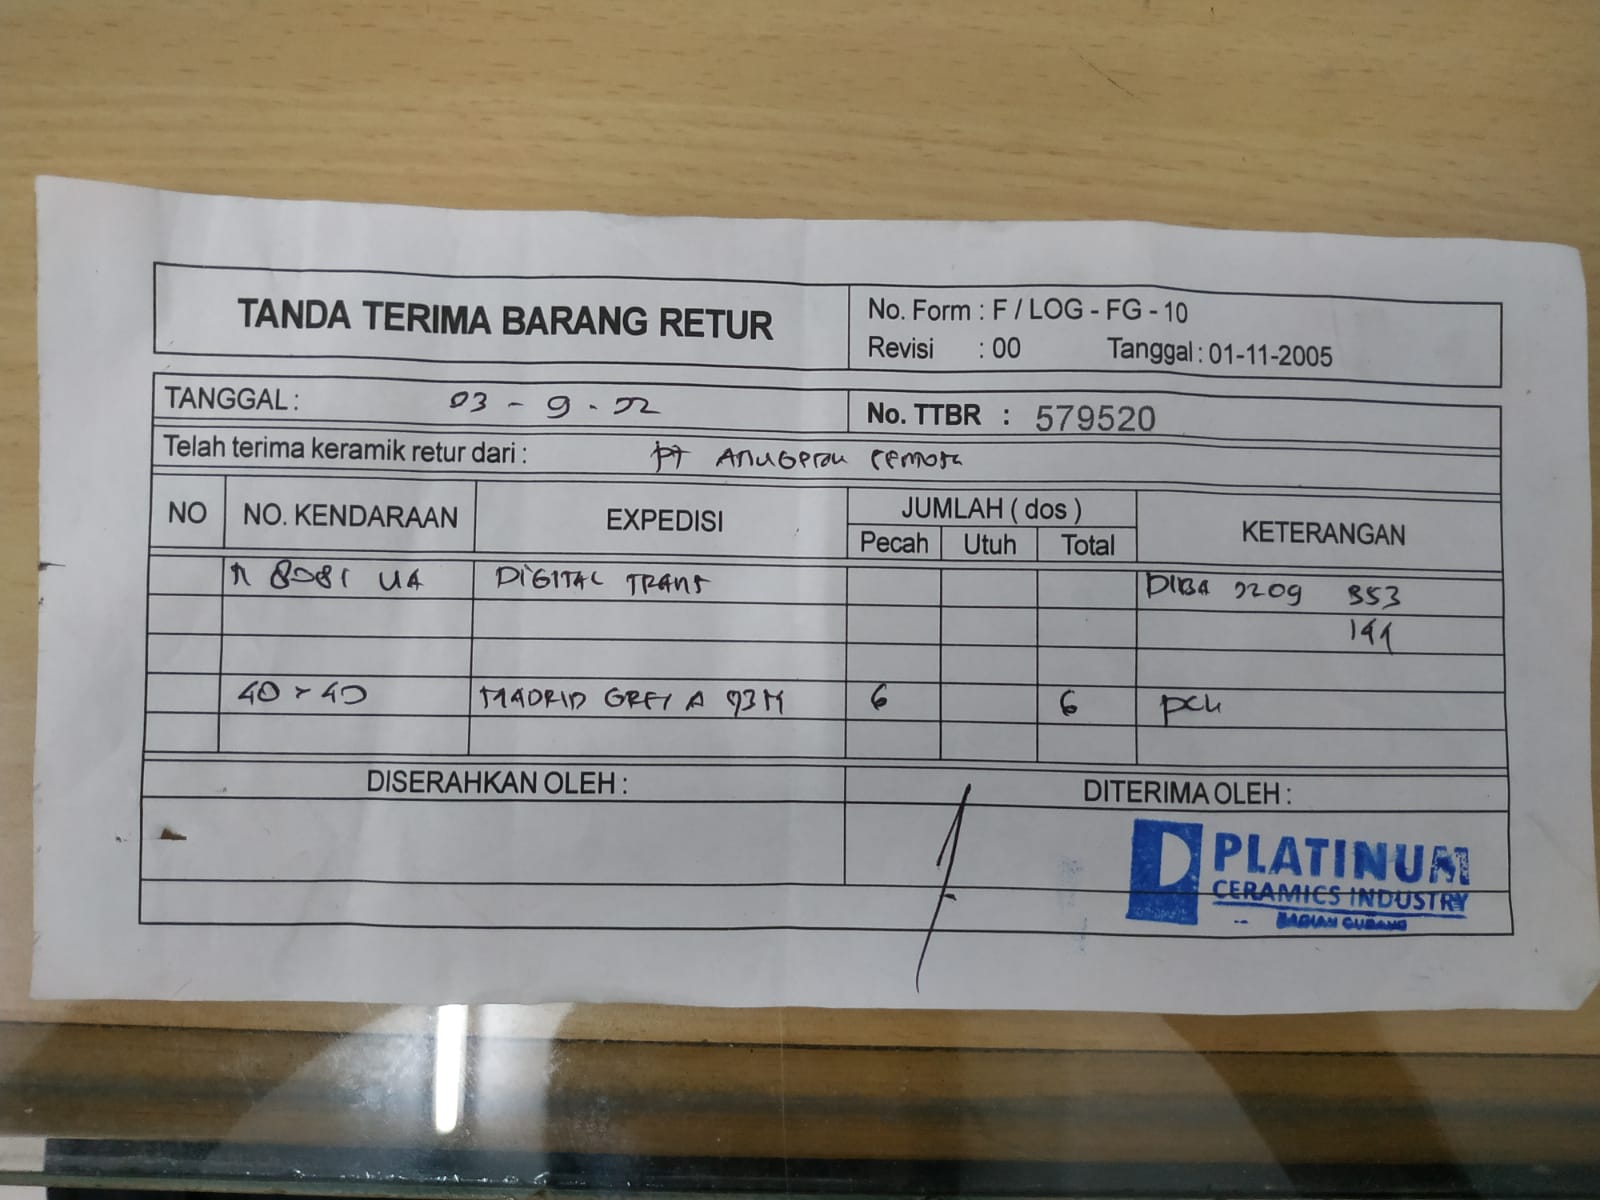 TANDA TERIMA BARANG RETUR
No. Form : F / LOG - FG - 10
Revisi : 00 Tanggal : 01-11-2005
TANGGAL : 03 - 9 - 22
No. TTBR : 579520
Telah terima keramik retur dari : PT ANUGERAH
NO NO. KENDARAAN EXPEDISI JUMLAH ( dos ) KETERANGAN
Pecah Utuh Total
N 8081 UA DIGITAL TRANS DIBA 2209 353
144
40 x 40 MADRID GREY A 93M 6 6 pch
DISERAHKAN OLEH : DITERIMA OLEH :
PLATINUM
CERAMICS INDUSTRY
BAGIAN GUDANG